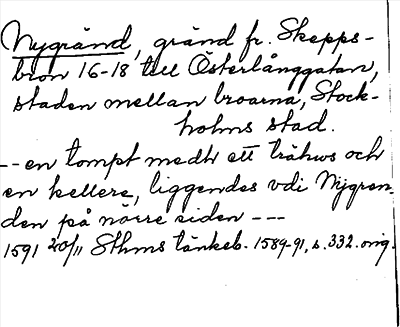 Nygränd, gränd fr. Skepps-
bron 16-18 till Österlånggatan,
staden mellan broarna, Stock-
holms stad.
-- en tompt medh ett trähws och
en kellere, liggendes vdi Nijgren-
den på nårre siden ---
1591 20/11 Sthms tänkeb. 1589-91, s. 332. orig.